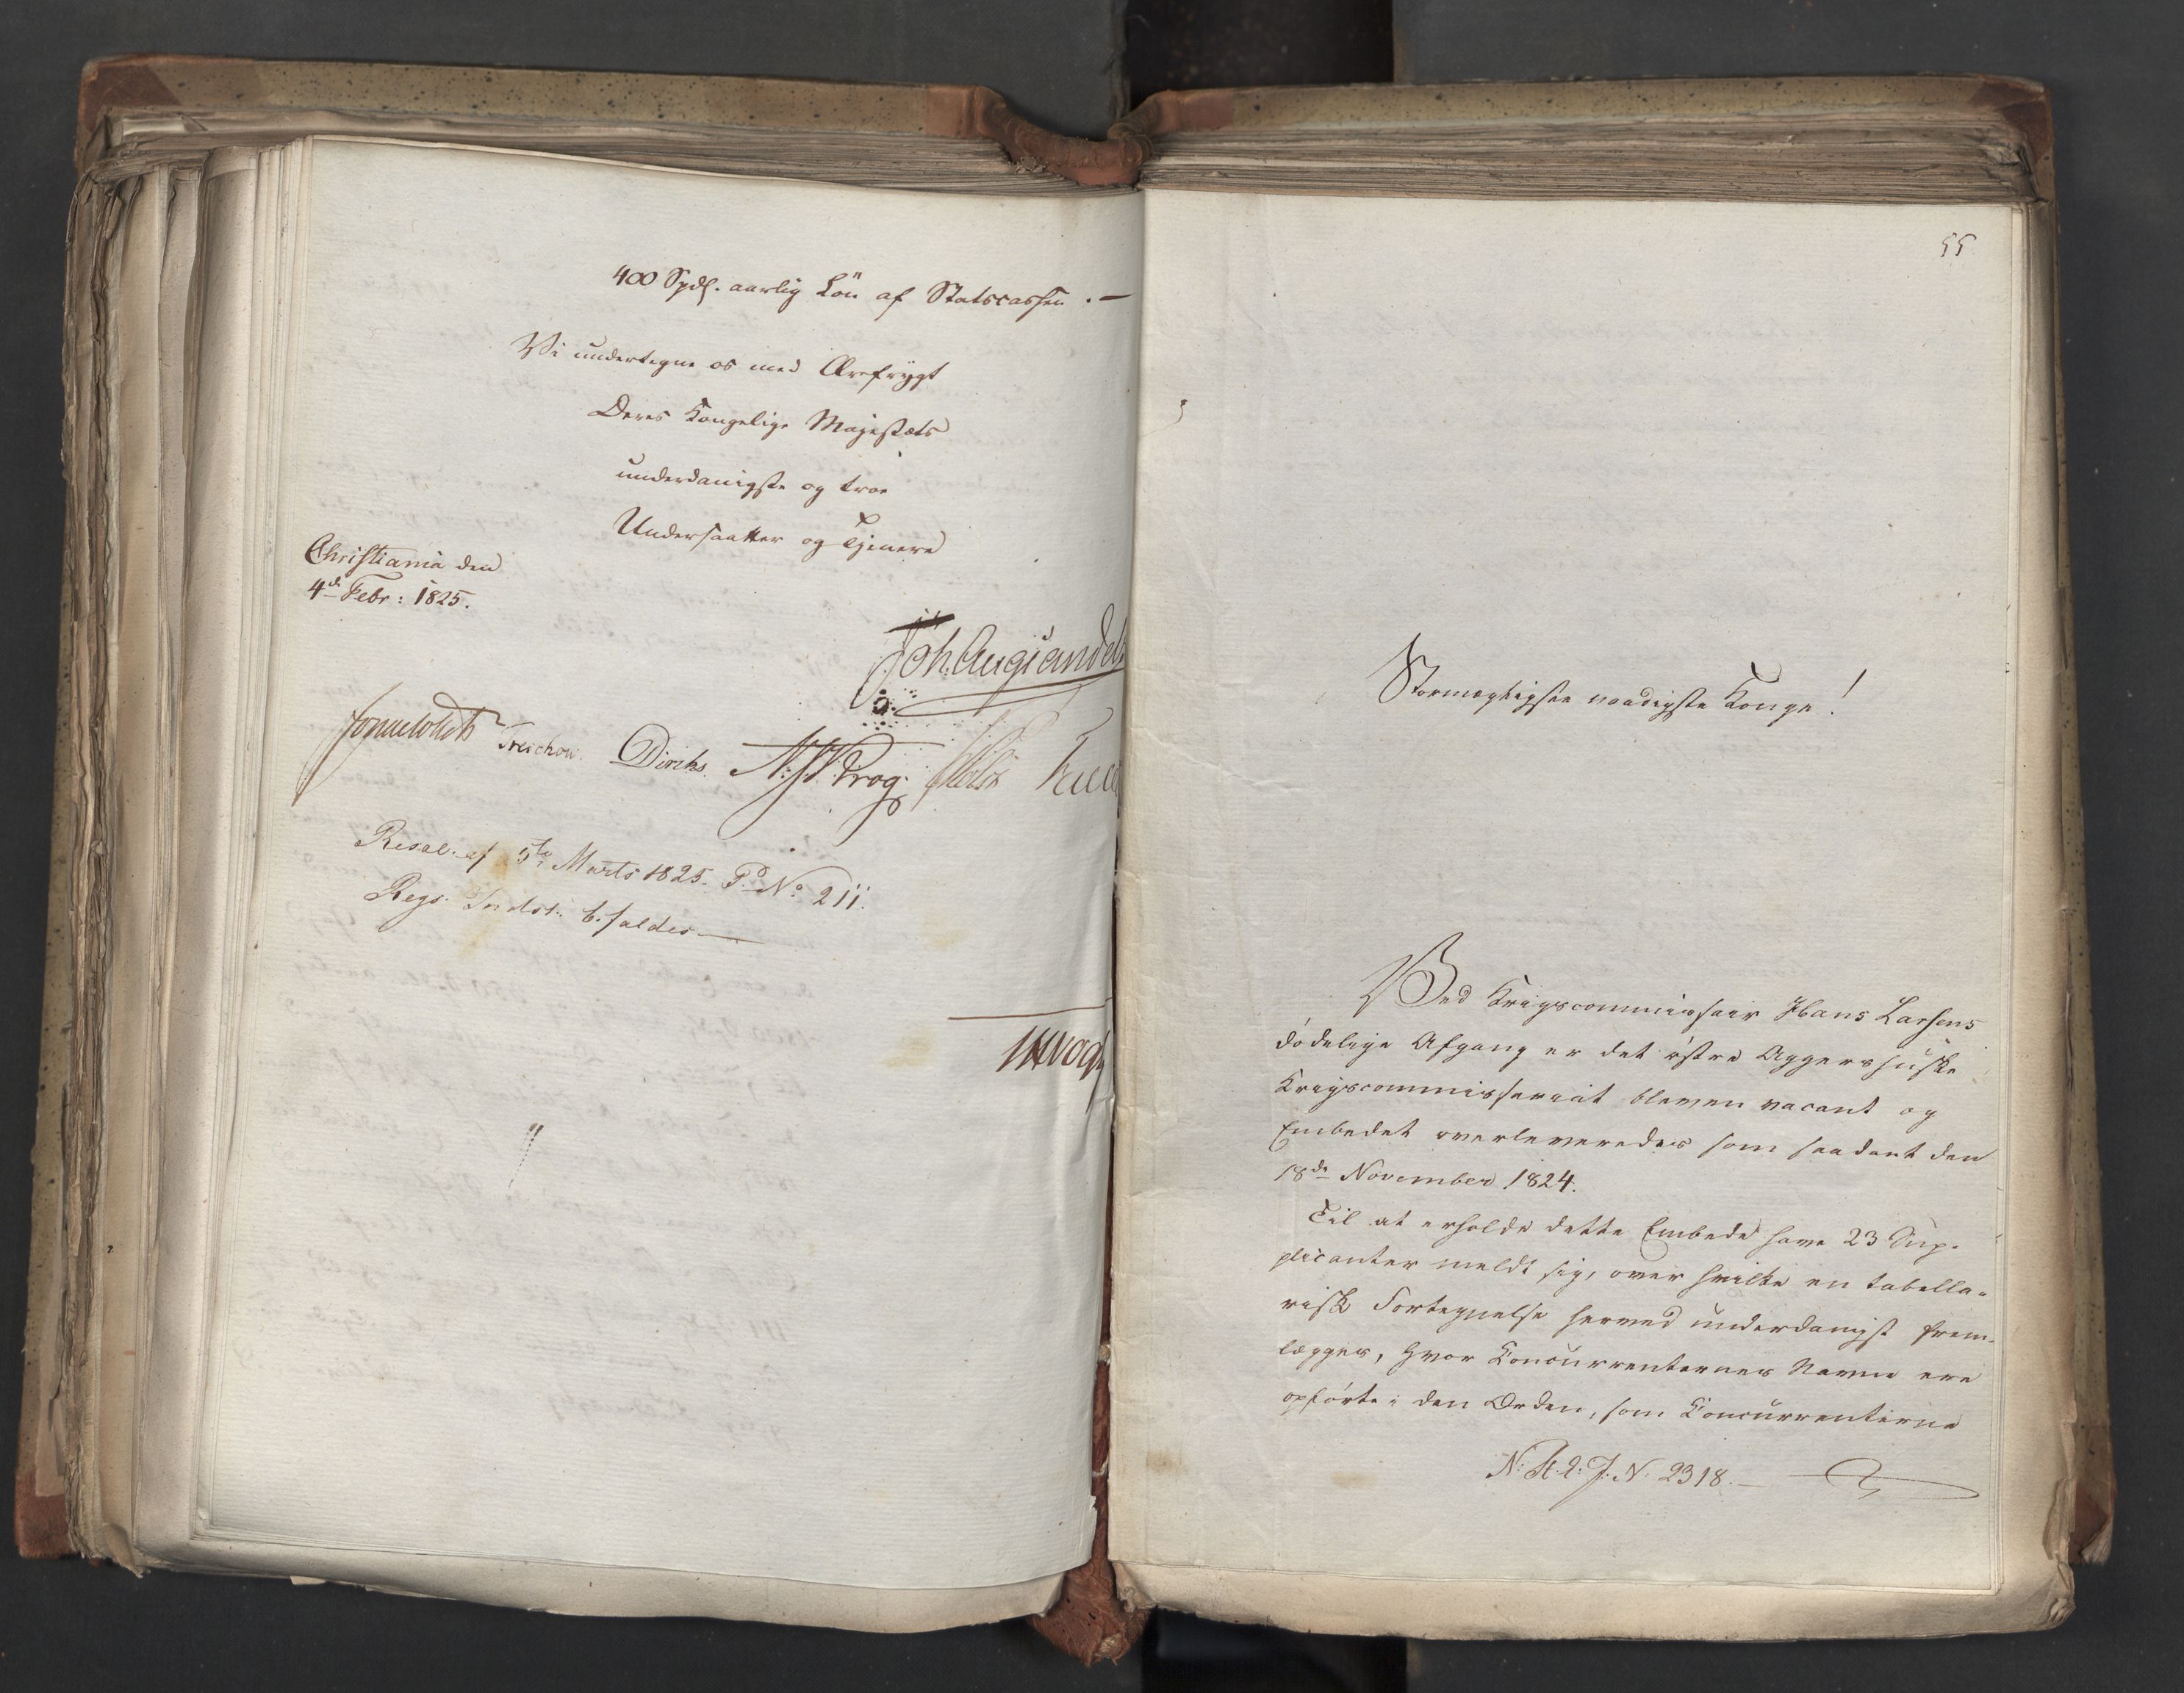 400 Spdl. aarlig Løn af Statscassen. —
Vi undertegne os med Ærefrygt
Deres Kongelige Majestæts
underdanigste og troe
Undersaatter og Tjenere
Christiania den
4de Febr: 1825.
Joh. Aug: Sandels
Sommerhielm Treschow. Diriks. N. J. M. Krog. Holst Fasti
Resol. af 5te Marts 1825. P.d No 211.
Regs. Indst. bifaldes —
JHVogt
55
Stormægtigste naadigste Konge!
Ved Krigscommissair Hans Larsens
dødelige Afgang er det østre Aggershuuske
Krigscommissariat bleven vacant og
Embedet overleveredes som saadant den
18de November 1824.
Til at erholde dette Embede have 23 Sup-
plicanter meldt sig, over hvilke en tabella-
risk Fortegnelse herved underdanigst frem-
lægges, hvor Concurrenternes Navne ere
opførte i den Orden, som Concurrenterne
N: A. 2: J. N. 2318. —